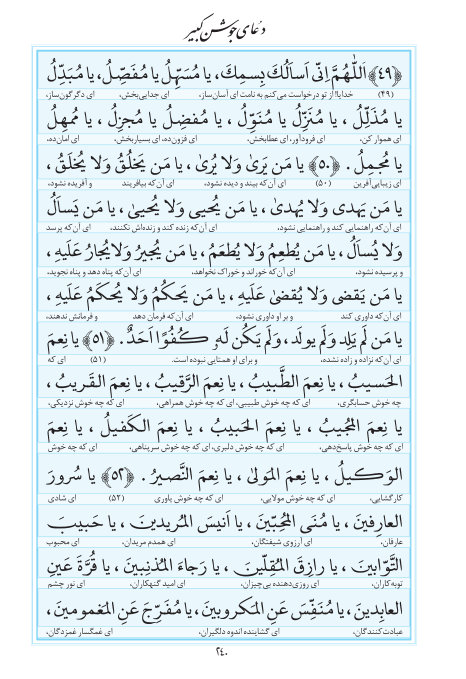 دعای جوشن کبیر
﴿٤٩﴾ اَللّٰهُمَّ اِنّی اَسأَلُكَ بِسمِكَ، یا مُسَهِّلُ یا مُفَصِّلُ، یا مُبَدِّلُ
(۴۹) خدایا! از تو درخواست می‌کنم به نامت ای آسان‌ساز، ای جدایی‌بخش، ای دگرگون‌ساز،
یا مُذَلِّلُ ، یا مُنَزِّلُ یا مُنَوِّلُ ، یا مُفضِلُ یا مُجزِلُ ، یا مُمهِلُ
ای هموار کن، ای فرودآور، ای عطابخش، ای فزون‌ده، ای بسیاربخش، ای امان‌ده،
یا مُجمِلُ . ﴿٥٠﴾ یا مَن یَریٰ وَلا یُریٰ، یا مَن یَخلُقُ وَلا یُخلَقُ ،
ای زیبایی‌آفرین (۵۰) ای آن‌که بیند و دیده نشود، ای آن‌که بیافریند و آفریده نشود،
یا مَن یَهدی وَلا یُهدیٰ، یا مَن یُحیی وَلا یُحییٰ، یا مَن یَسأَلُ
ای آن‌که راهنمایی کند و راهنمایی نشود، ای آن‌که زنده کند و زنده‌اش نکنند، ای آن‌که پرسد
وَلا یُسأَلُ، یا مَن یُطعِمُ وَلا یُطعَمُ، یا مَن یُجیرُ وَلایُجارُ عَلَیهِ،
و پرسیده نشود، ای آن‌که خوراند و خوراک نخواهد، ای آن‌که پناه دهد و پناه نجوید،
یا مَن یَقضی وَلا یُقضیٰ عَلَیهِ، یا مَن یَحکُمُ وَلا یُحکَمُ عَلَیهِ،
ای آن‌که داوری کند و بر او داوری نشود، ای آن‌که فرمان دهد و فرمانش ندهند،
یا مَن لَم یَلِد وَلَم یولَد، وَلَم یَکُن لَهو کُفُوًا اَحَدٌ. ﴿٥١﴾ یا نِعمَ
ای آن‌که نزاده و زاده نشده، و برای او همتایی نبوده است. (۵۱) ای که
الحَسیبُ، یا نِعمَ الطَّبیبُ، یا نِعمَ الرَّقیبُ، یا نِعمَ القَریبُ،
چه خوش حسابگری، ای که چه خوش طبیبی، ای که چه خوش همراهی، ای که چه خوش نزدیکی،
یا نِعمَ المُجیبُ، یا نِعمَ الحَبیبُ ، یا نِعمَ الکَفیلُ ، یا نِعمَ
ای که چه خوش پاسخ‌دهی، ای که چه خوش دلبری، ای که چه خوش سرپناهی، ای که چه خوش
الوَکیلُ ، یا نِعمَ المَولیٰ، یا نِعمَ النَّصیرُ . ﴿٥٢﴾ یا سُرورَ
کارگشایی، ای که چه خوش مولایی، ای که چه خوش یاوری (۵۲) ای شادی
العارِفینَ ، یا مُنَی المُحِبّینَ ، یا اَنیسَ المُریدینَ ، یا حَبیبَ
عارفان، ای آرزوی شیفتگان، ای همدم مریدان، ای محبوب
التَّوّابینَ ، یا رازِقَ المُقِلّینَ ، یا رَجاءَ المُذنِبینَ ، یا قُرَّةَ عَینِ
توبه‌کاران، ای روزی‌دهنده بی‌چیزان، ای امید گنهکاران، ای نور چشم
العابِدینَ، یا مُنَفِّسَ عَنِ المَکروبینَ، یا مُفَرِّجَ عَنِ المَغمومینَ،
عبادت‌کنندگان، ای گشاینده اندوه دلگیران، ای غمگسار غمزدگان،
۲۴۰